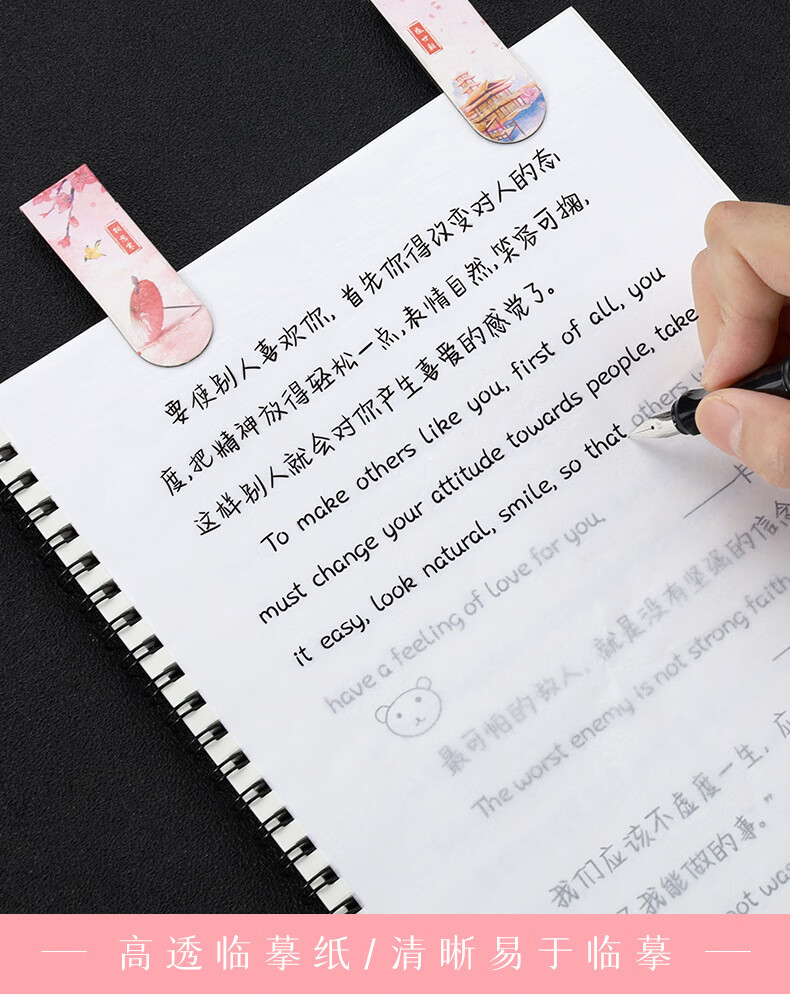 要使别人喜欢你，首先你得改变对人的态
度，把精神放得轻松一点，表情自然，笑容可掬，
这样别人就会对你产生喜爱的感觉了。
To make others like you, first of all, you
must change your attitude towards people, take
it easy, look natural, smile, so that others
have a feeling of love for you
——卡
最可怕的敌人，就是没有坚强的信念
The worst enemy is not strong faith
我们应该不虚度一生，应
我能做的事。”
not was
高透临摹纸/清晰易于临摹